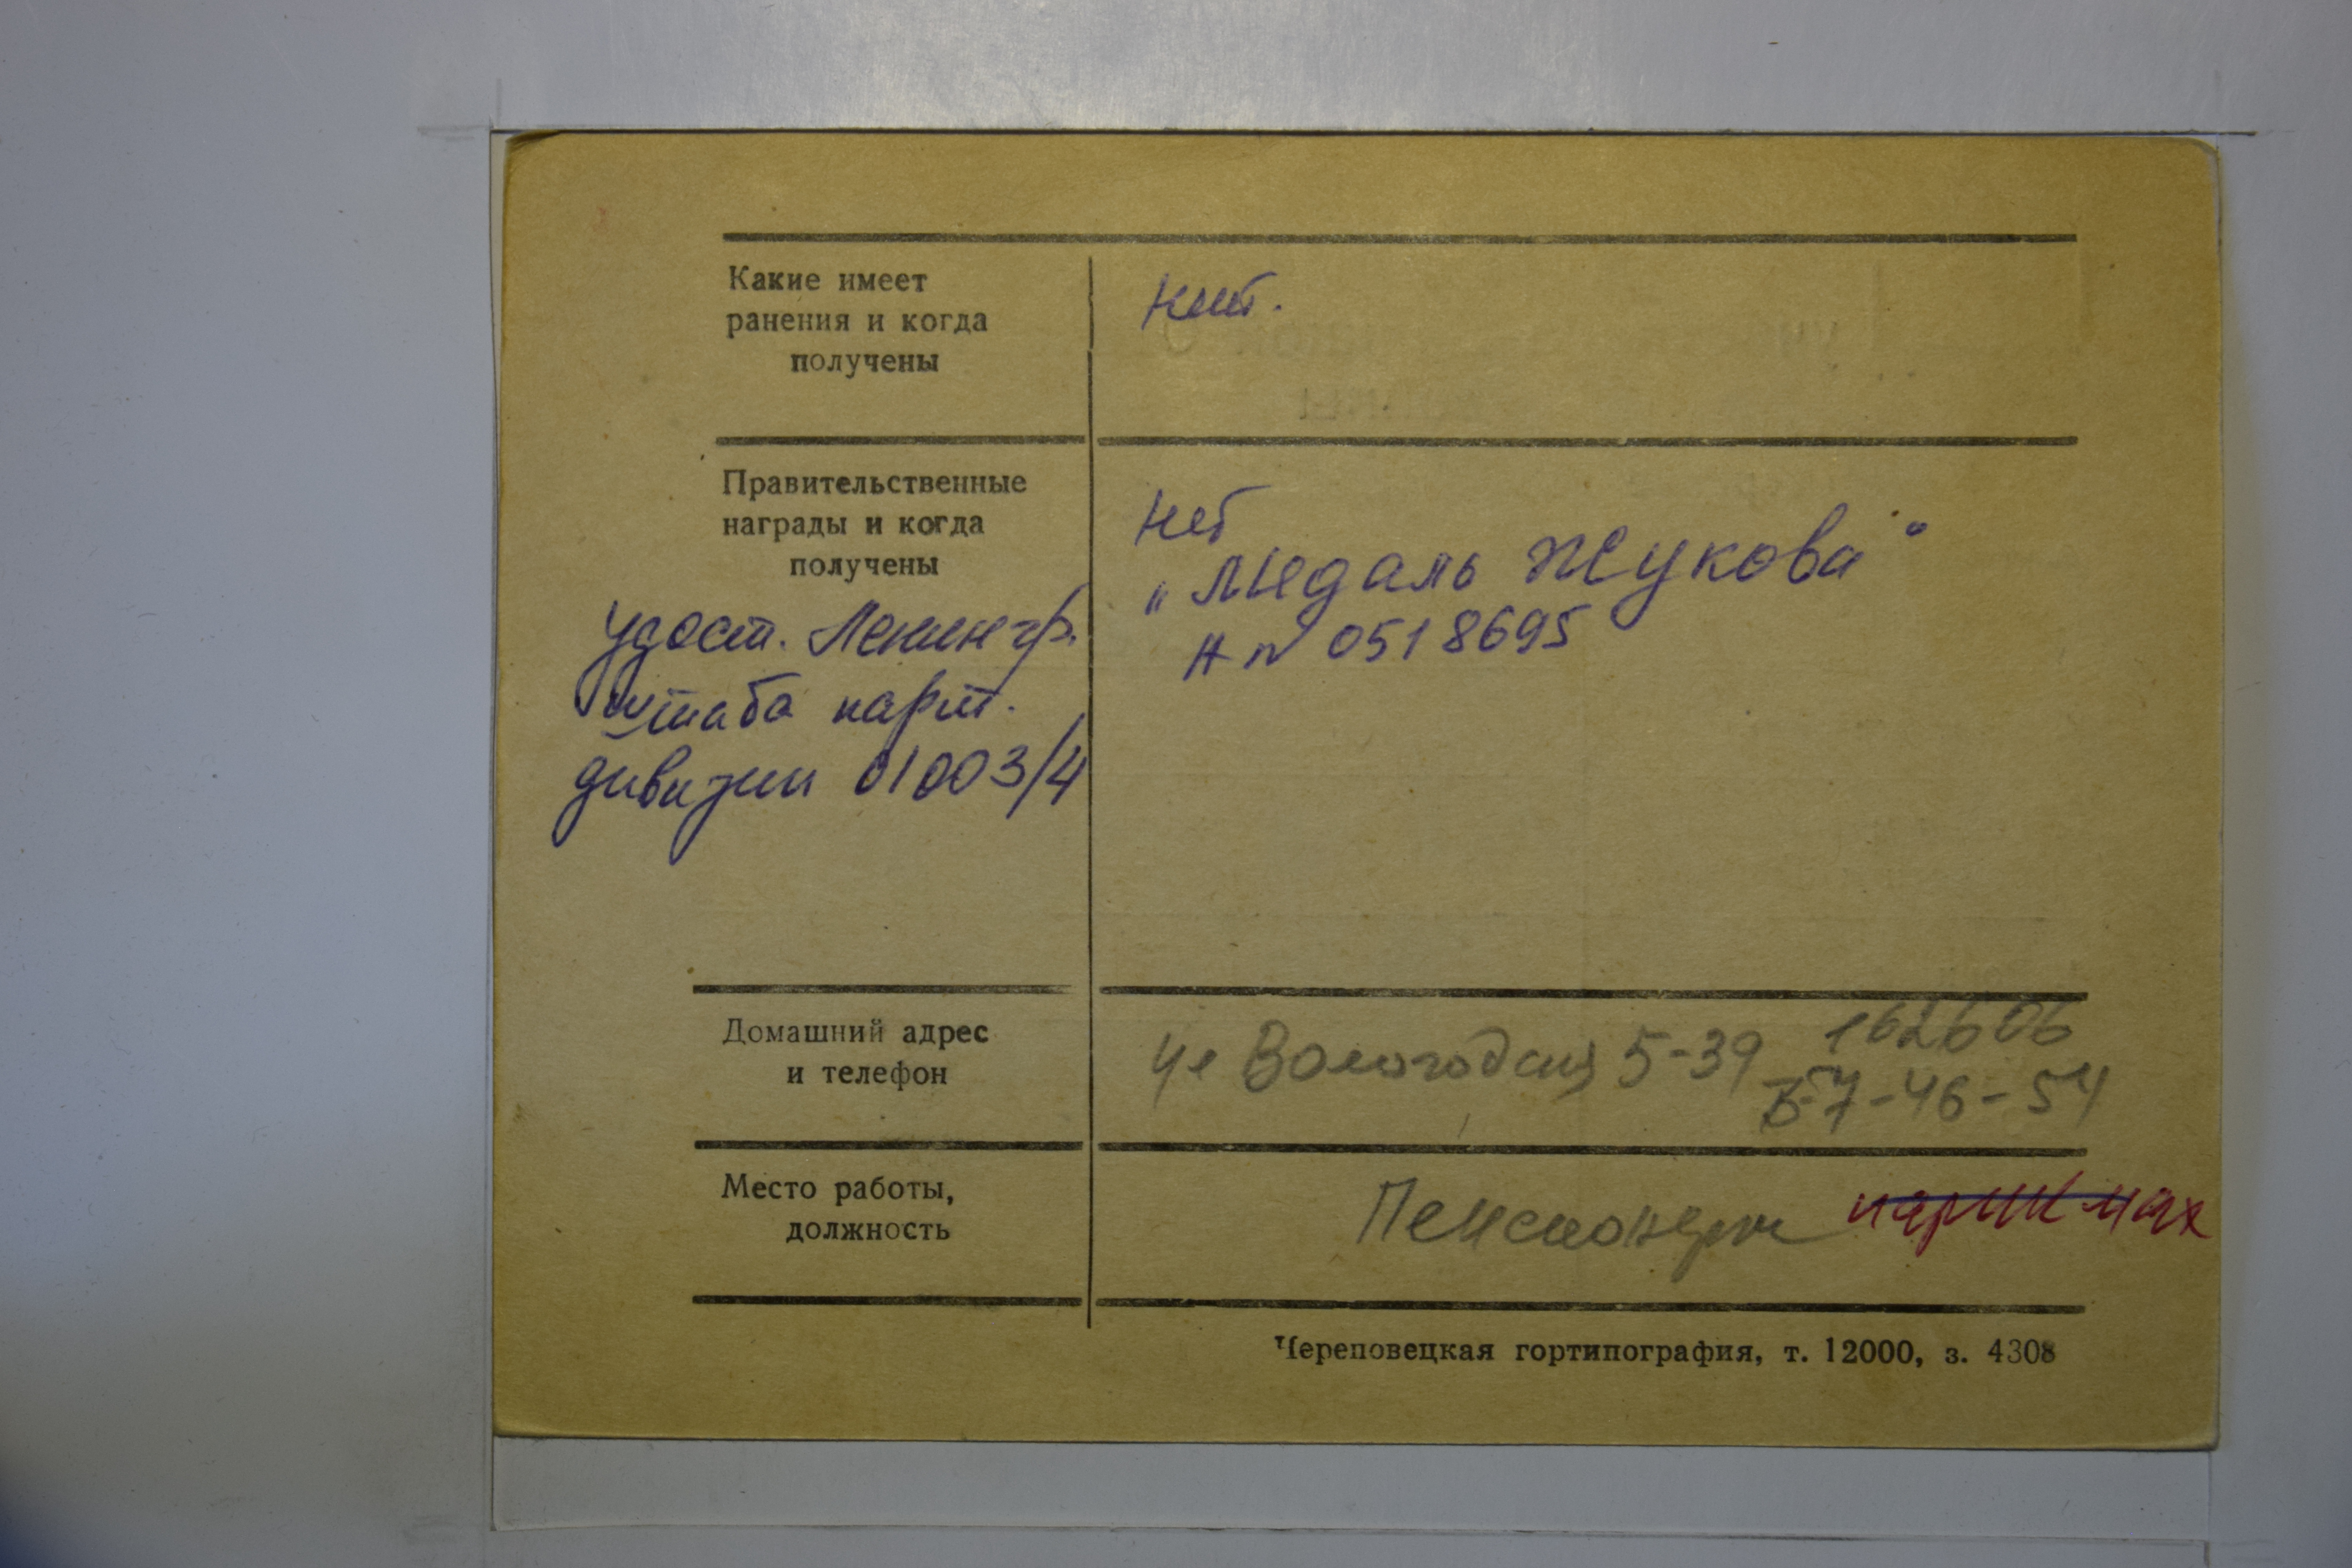 Какие имеет
ранения и когда
получены
нет.
Правительственные
награды и когда
получены
нет
„Медаль Жукова“
А № 0518695
удост. Ленингр.
штаба парт.
дивизии 01003/4
Домашний адрес
и телефон
ул Вологодская 5-39 162606
7-46-54
Место работы,
должность
Пенсионерка
Череповецкая гортипография, т. 12000, з. 4308